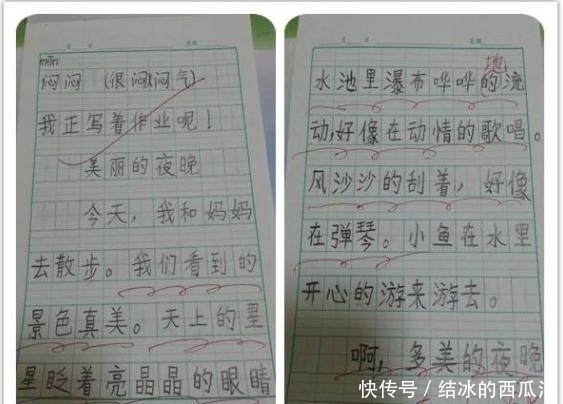 mēn
闷闷 (很闷 闷气)
我正写着作业呢!
美丽的夜晚
今天,我和妈妈
去散步。我们看到的
景色真美。天上的星
星眨着亮晶晶的眼睛
地
水池里瀑布哗哗的流
动,好像在动情的歌唱。
风沙沙的刮着,好像
在弹琴。小鱼在水里
开心的游来游去。
啊,多美的夜晚
快传号/结冰的西瓜